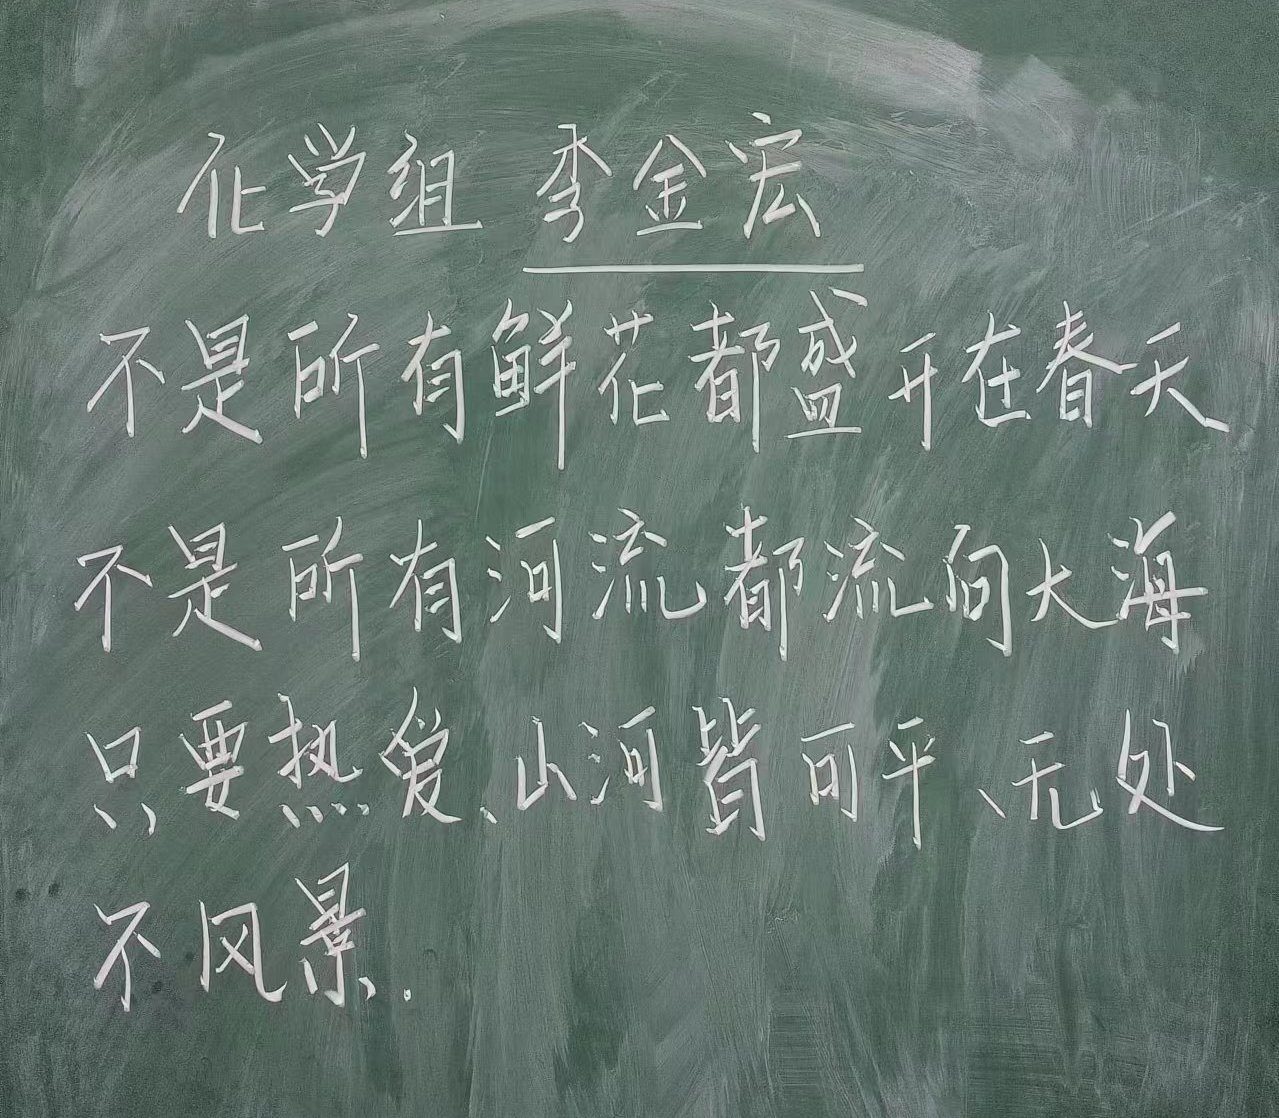 化学组 李金宏
不是所有鲜花都盛开在春天
不是所有河流都流向大海
只要热爱、山河皆可平、无处
不风景.